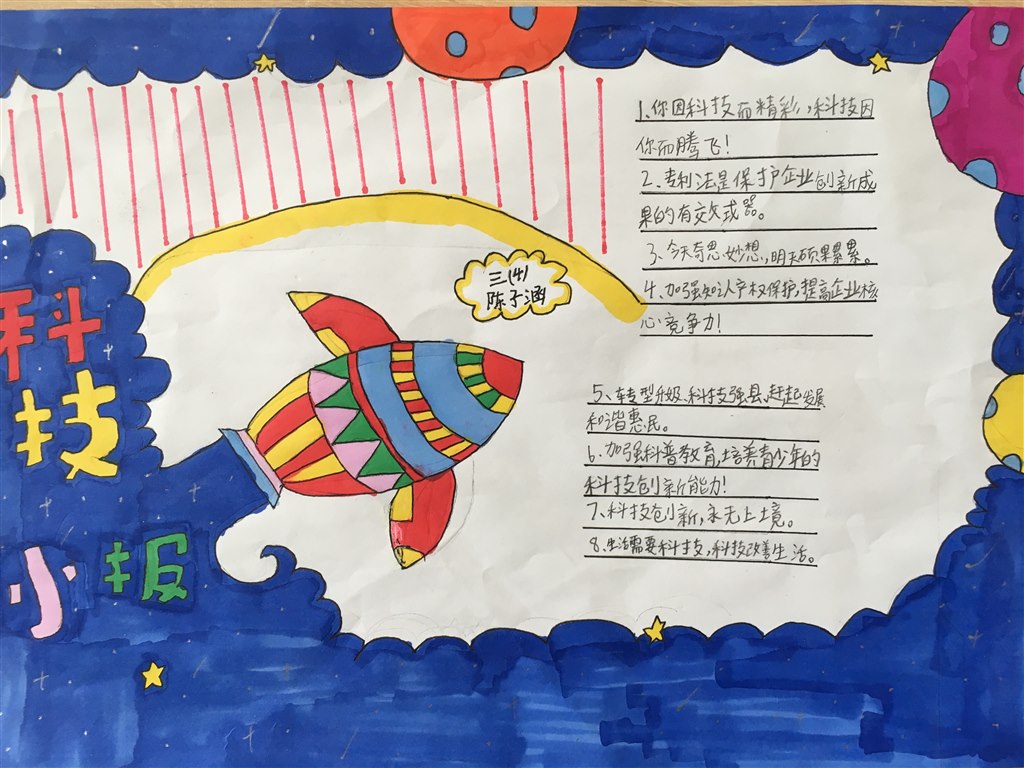 科
技
小报
三(4)
陈子涵
1、你因科技而精彩,科技因
你而腾飞!
2、专利法是保护企业创新成
果的有效武器。
3、今天奇思妙想,明天硕果累累。
4、加强知认产权保护,提高企业核
心竞争力!
5、转型升级、科技强县、赶起发展
和谐惠民。
6、加强科普教育,培养青少年的
科技创新能力!
7、科技创新,永无上境。
8、生活需要科技,科技改善生活。